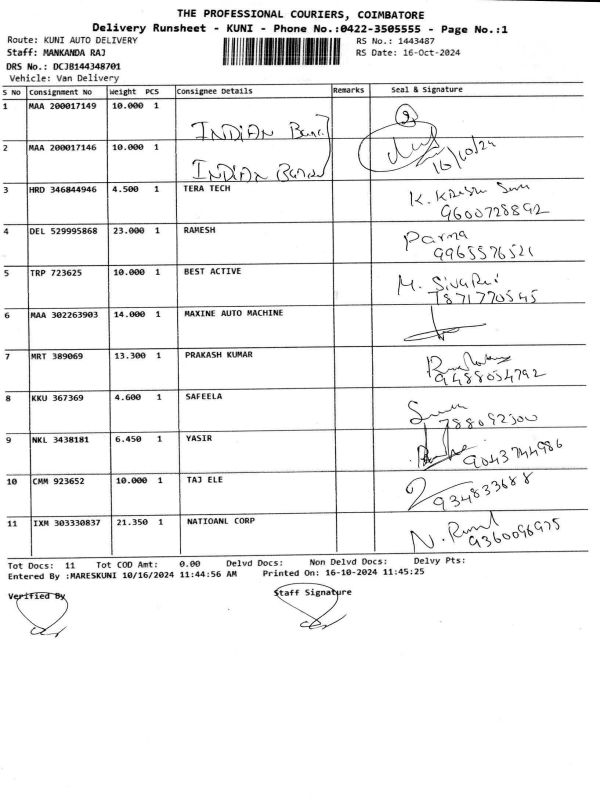 THE PROFESSIONAL COURIERS, COIMBATORE
Delivery Runsheet - KUNI - Phone No.:0422-3505555 - Page No.:1
Route: KUNI AUTO DELIVERY
RS No.: 1443487
Staff: MANKANDA RAJ
RS Date: 16-Oct-2024
DRS No.: DCJB144348701
Vehicle: Van Delivery
S No Consignment No Weight PCS Consignee Details Remarks Seal & Signature
1 MAA 200017149 10.000 1 INDIAN
2 MAA 200017146 10.000 1 INDIAN 16/10/24
3 HRD 346844946 4.500 1 TERA TECH K.
9600728892
4 DEL 529995868 23.000 1 RAMESH Parma
9965576521
5 TRP 723625 10.000 1 BEST ACTIVE M.
7871770545
6 MAA 302263903 14.000 1 MAXINE AUTO MACHINE
7 MRT 389069 13.300 1 PRAKASH KUMAR
9488054792
8 KKU 367369 4.600 1 SAFEELA
9 NKL 3438181 6.450 1 YASIR 9043744986
10 CMM 923652 10.000 1 TAJ ELE
11 IXM 303330837 21.350 1 NATIOANL CORP N.
Tot Docs: 11 Tot COD Amt: 0.00 Delvd Docs: Non Delvd Docs: Delvy Pts:
Entered By :MARESKUNI 10/16/2024 11:44:56 AM Printed On: 16-10-2024 11:45:25
Verified By Staff Signature